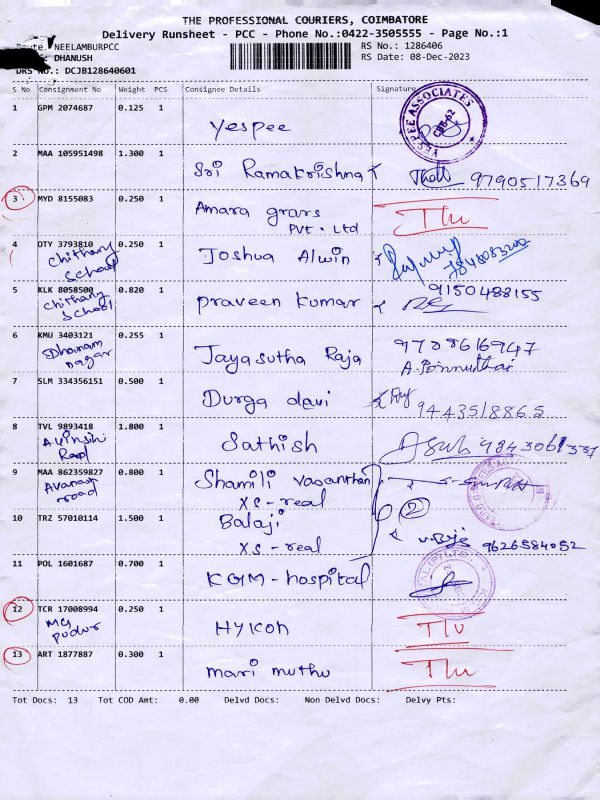 THE PROFESSIONAL COURIERS, COIMBATORE
Delivery Runsheet - PCC - Phone No.:0422-3505555 - Page No.:1
NEELAMBURPCC
RS No.: 1286406
DHANUSH
RS Date: 08-Dec-2023
DRS No.: DCJB128640601
S No Consignment No Weight PCS Consignee Details Signature
1 GPM 2074687 0.125 1 Yespee
YES PEE ASSOCIATES
CBE-62
2 MAA 105951498 1.300 1 Sri Ramakrishna 9790517369
3 MYD 8155083 0.250 1 Amara grars
PVT. Ltd
4 OTY 3793810 0.250 1 Joshua Alwin
Chithany
School
5 KLK 8058500 0.820 1 praveen kumar 9150488155
Chithany
School
6 KMU 3403121 0.255 1 Jayasutha Raja 9788616947
Dhanam
nagar
A. Ponnuthai
7 SLM 334356151 0.500 1 Durga devi 9443518865
8 TVL 9893418 1.800 1 Sathish
Avinshi
Road
9 MAA 862359827 0.800 1 Shamili vasanthan
Avanashi
road
XS-real
2
10 TRZ 57010114 1.500 1 Balaji
XS-real 9626584052
11 POL 1601687 0.700 1 KGM-hospital
12 TCR 17008994 0.250 1 HYKON
MG
pudur
13 ART 1877887 0.300 1 mari muthu
Tot Docs: 13 Tot COD Amt: 0.00 Delvd Docs: Non Delvd Docs: Delvy Pts: